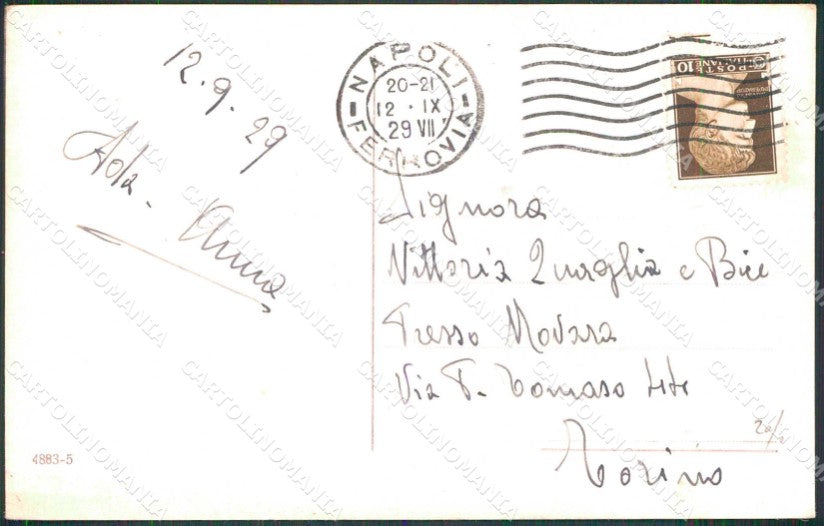 12.9.29
Ada - Anna
NAPOLI
20-21
12 · IX
29 VII
FERROVIA
POSTE
ITALIANE
10
Signora
Vittoria Quaglia e Bice
Presso Novara
Via P. Tomaso
Torino
4883-5
CARTOLINOMANIA